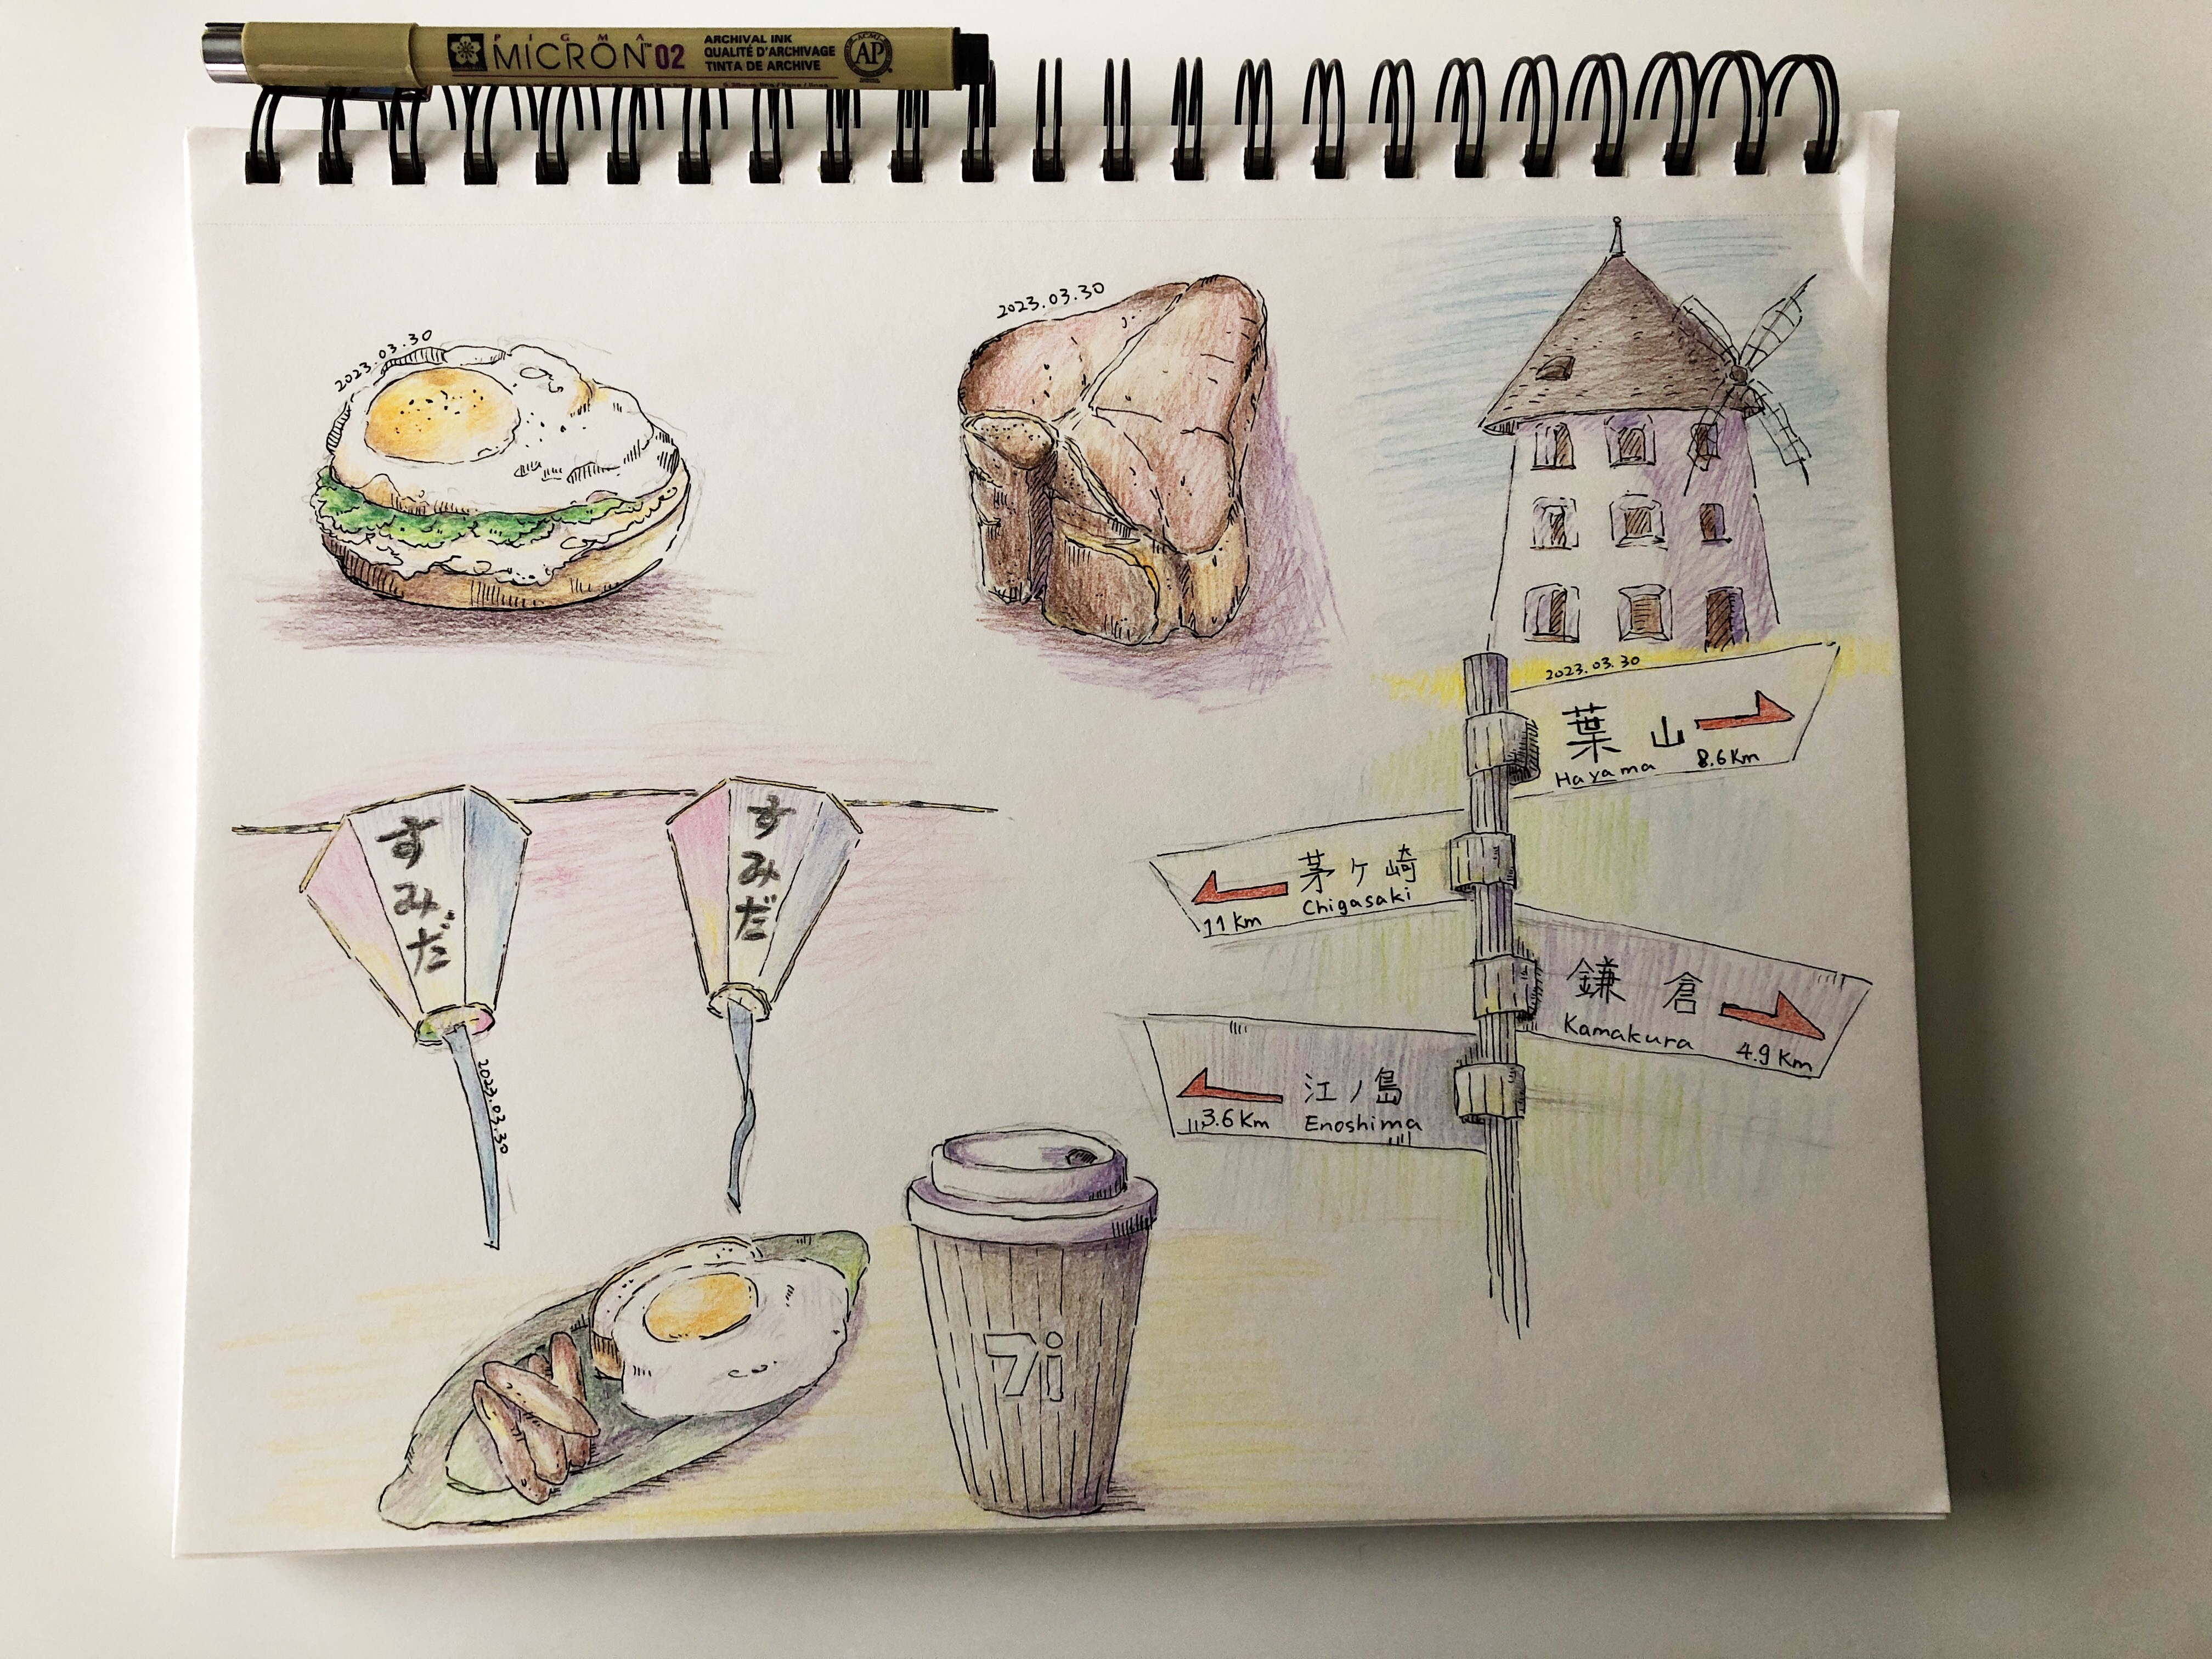 PIGMA
MICRON™ 02
ARCHIVAL INK
QUALITÉ D'ARCHIVAGE
TINTA DE ARCHIVE
ACMI
AP
2023.03.30
2023.03.30
2023.03.30
葉山
Hayama 8.6Km
茅ヶ崎
Chigasaki
11Km
鎌倉
Kamakura
4.9Km
江ノ島
Enoshima
3.6Km
すみだ
すみだ
2023.03.30
7i